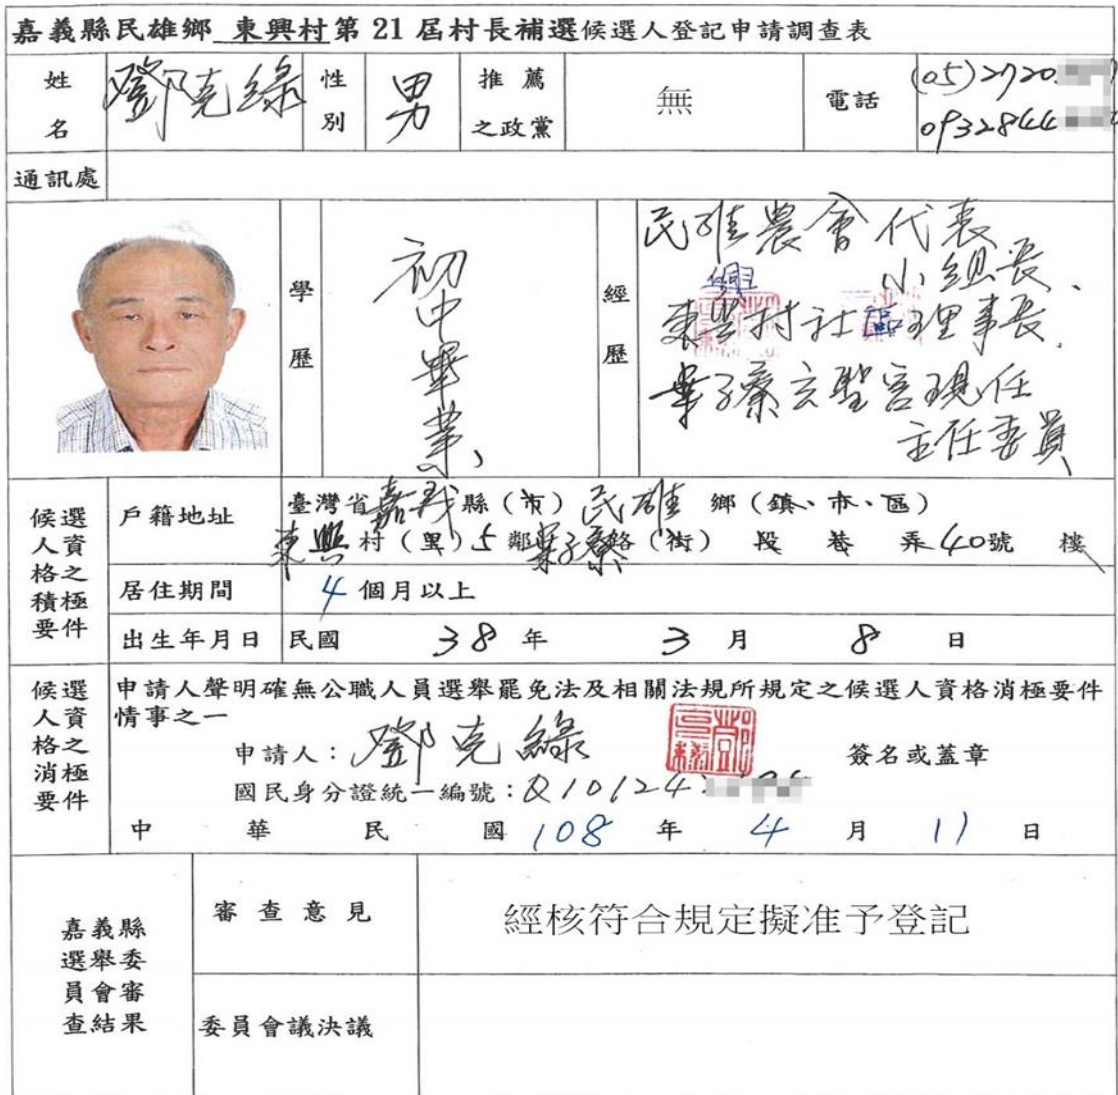 嘉義縣民雄鄉 東興村第21屆村長補選候選人登記申請調查表
姓名 鄧克綠 性別 男 推薦之政黨 無 電話 (05)2720
0932844
通訊處
學歷 初中畢業、
經歷 民雄農會代表
小組長、
東興村社區理事長、
寮子廍玄聖宮現任
主任委員
候選人資格之積極要件
戶籍地址 臺灣省嘉義縣(市)民雄鄉(鎮、市、區)
東興村(里)5鄰 路(街) 段 巷 弄40號 樓
居住期間 4個月以上
出生年月日 民國 38年 3月 8日
候選人資格之消極要件
申請人聲明確無公職人員選舉罷免法及相關法規所規定之候選人資格消極要件
情事之一
申請人:鄧克綠 簽名或蓋章
國民身分證統一編號:Q10124
中華民國108年4月11日
嘉義縣選舉委員會審查結果
審查意見 經核符合規定擬准予登記
委員會議決議